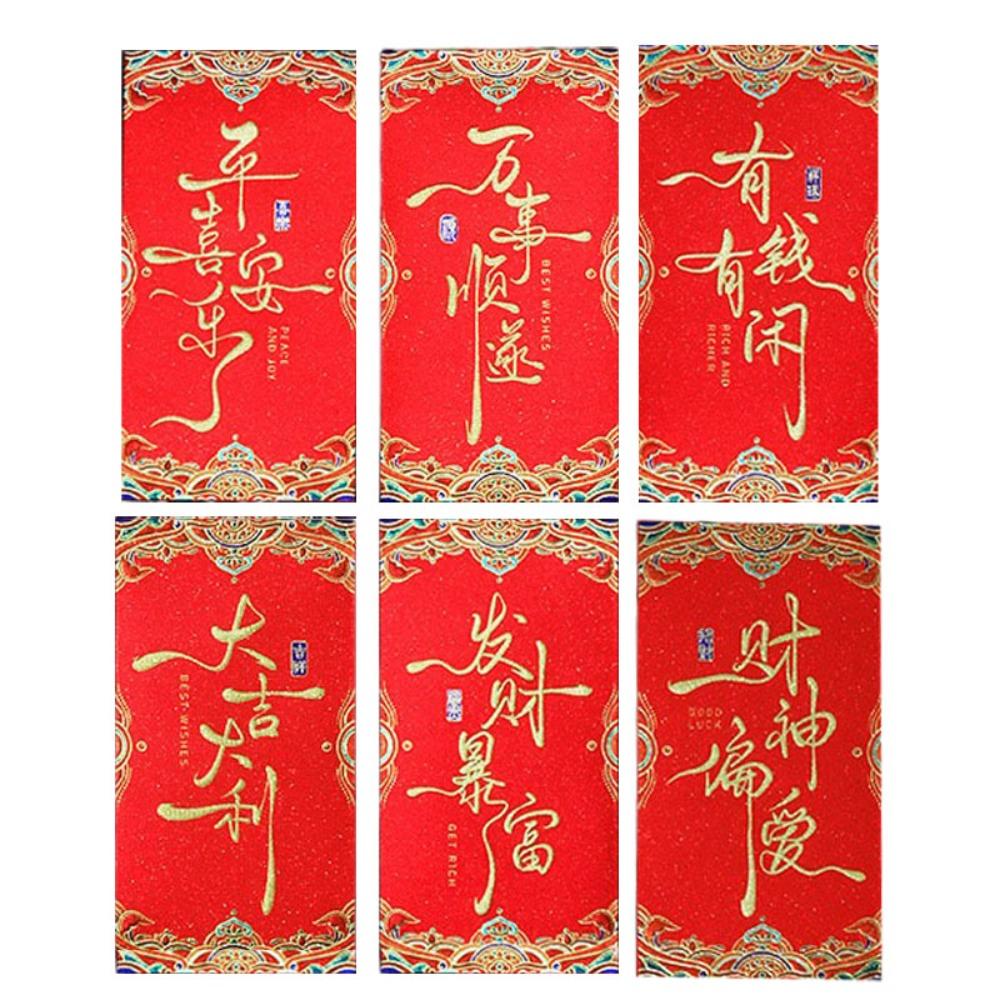 平安
喜乐
PEACE
AND JOY
万事
顺遂
BEST WISHES
有钱
有闲
RICH AND
RICHER
大吉
大利
吉祥
BEST WISHES
发财
暴富
GET RICH
财神
偏爱
GOOD
LUCK